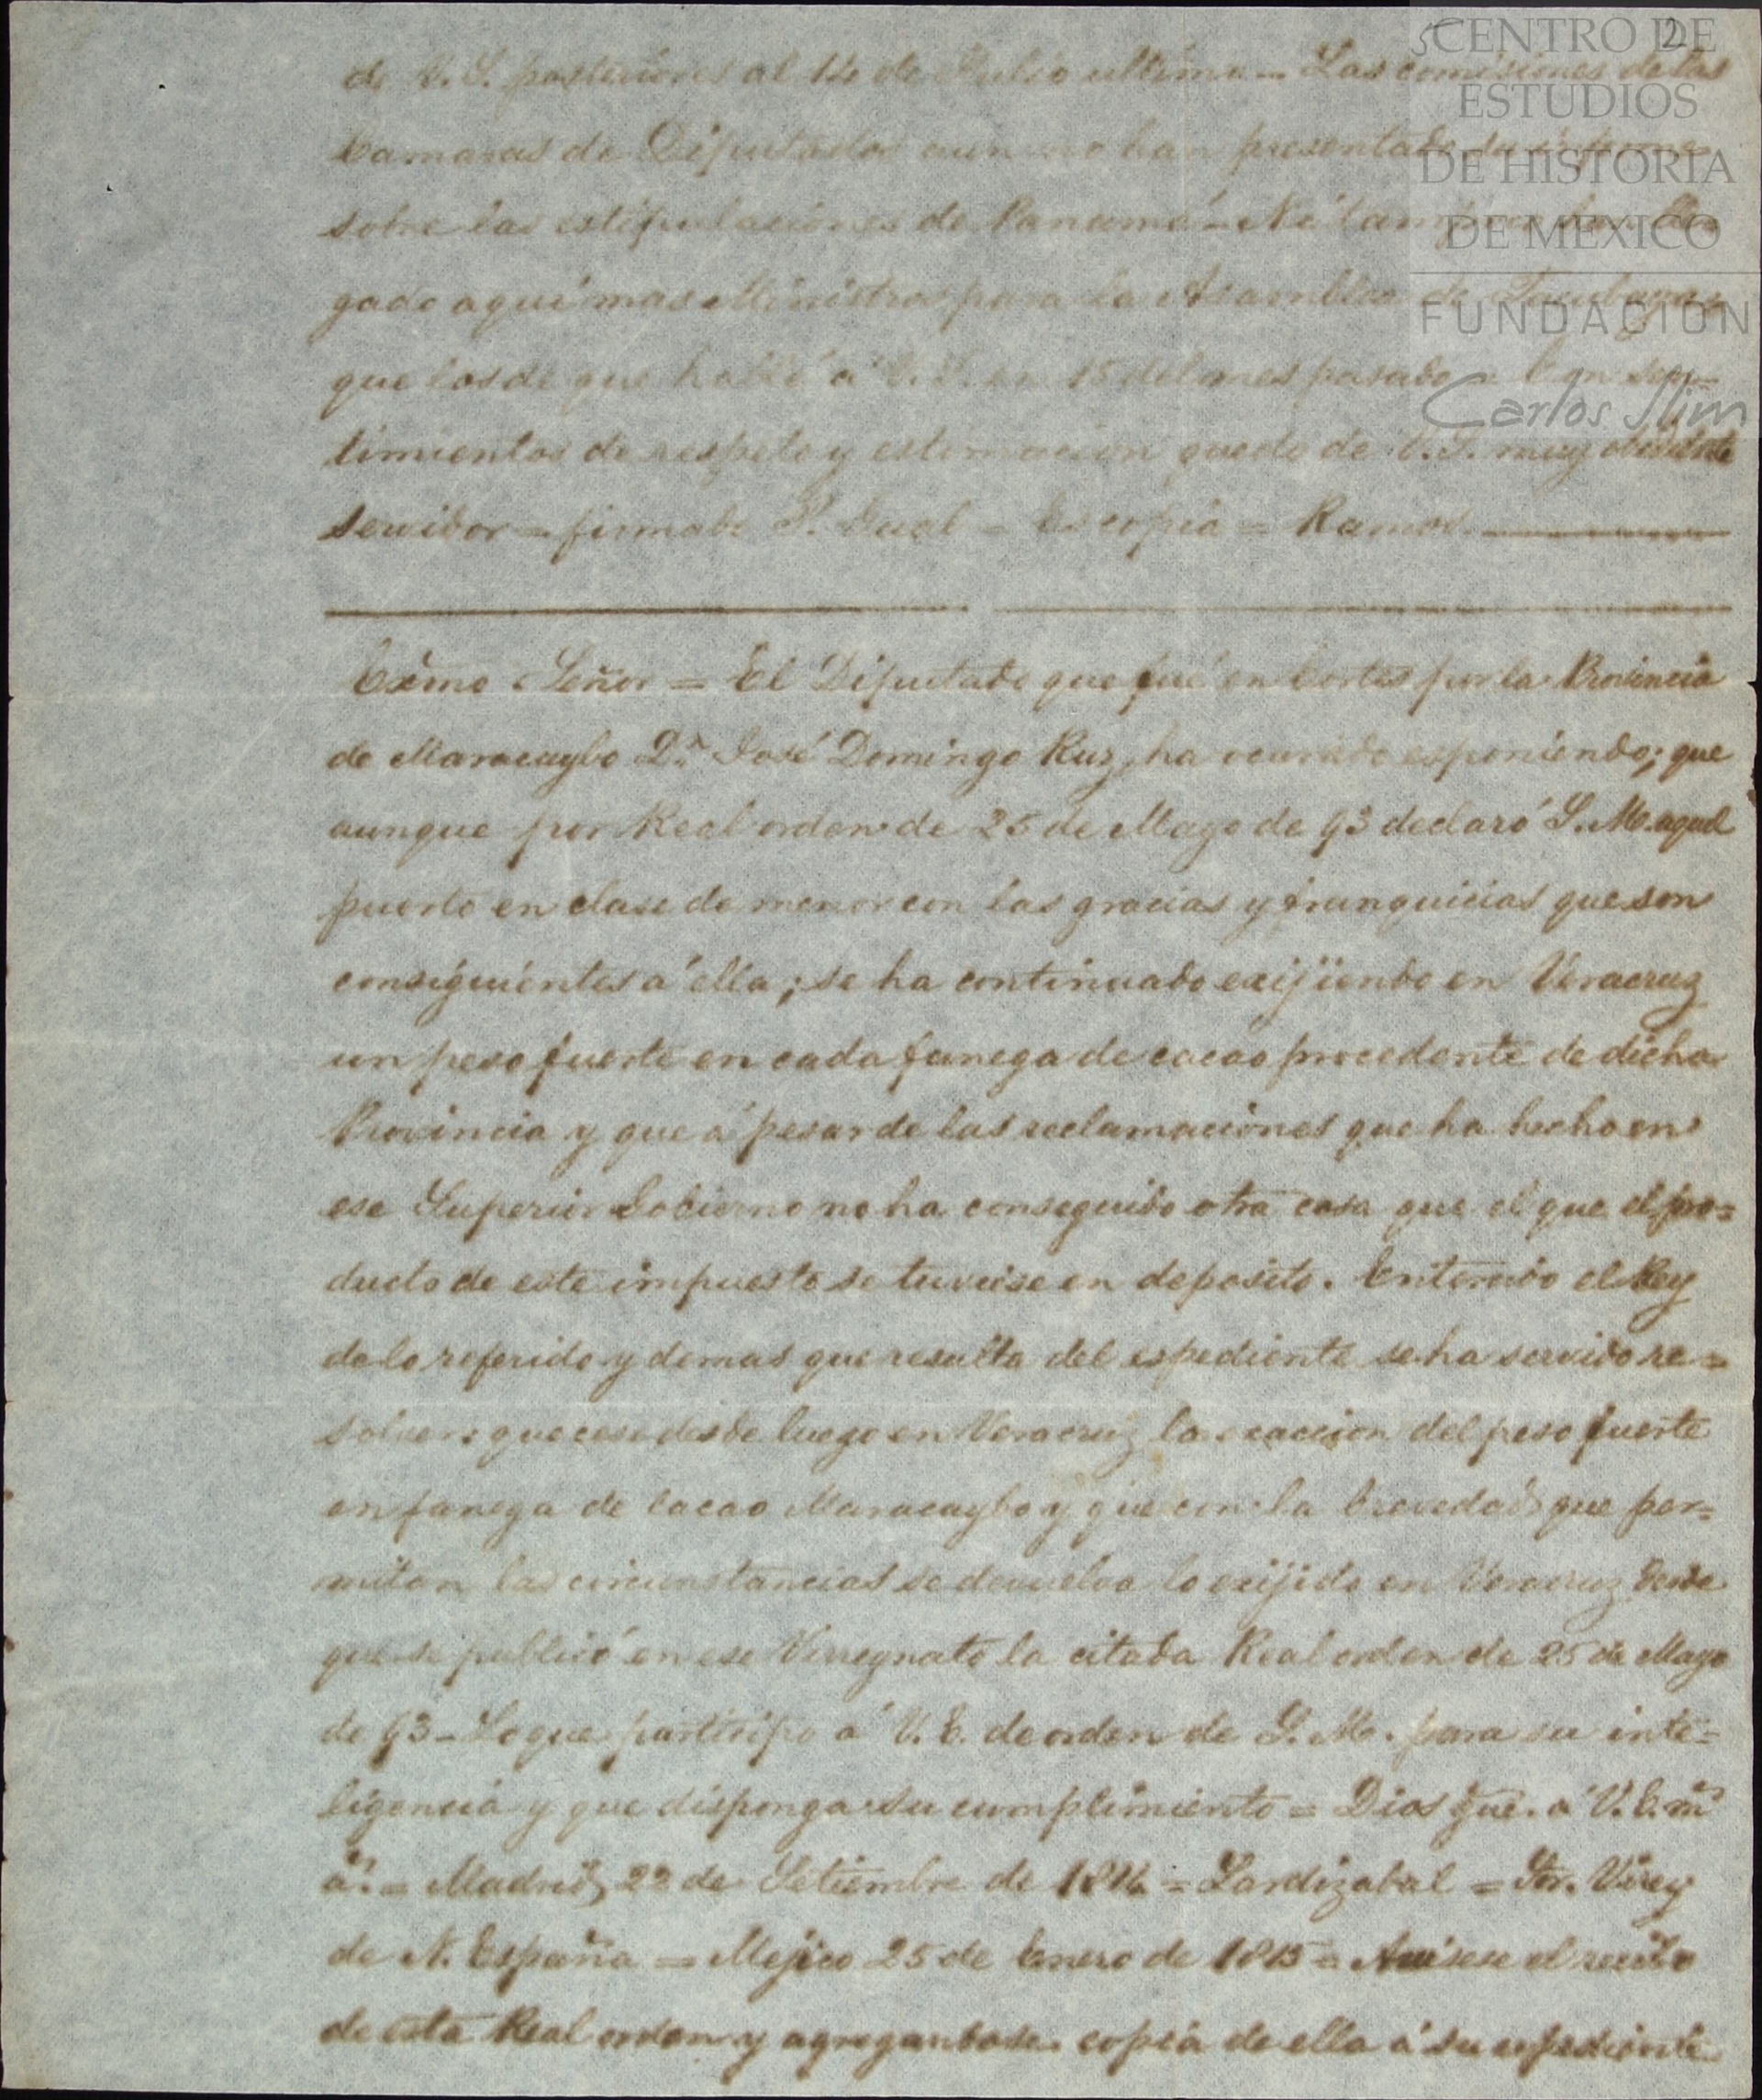 CENTRO DE
ESTUDIOS
DE HISTORIA
DE MEXICO
FUNDACION
Carlos Slim
2
de V. S. posteriores al 14 de Julio ultimo = Las comisiones de las
Camaras de Diputados aun no han presentado su informe
sobre las estipulaciones de Panamá = Ni tampoco han lle
gado aqui mas Ministros para la Asamblea de Tacubaya
que los de que hablé á V. S. en 15 del mes pasado = Con sen
timientos de respeto y estimacion quedo de V. S. muy obediente
servidor = firmado P. Gual = Es copia = Ramos
Exmo Señor = El Diputado que fué en Cortes por la Provincia
de Maracaybo Dn. José Domingo Ruz, ha ocurrido esponiendo; que
aunque por Real orden de 25 de Mayo de 93 declaró S. M. aquel
puerto en clase de menor con las gracias y franquicias que son
consiguientes á ella; se ha continuado exijiendo en Veracruz
un peso fuerte en cada fanega de cacao procedente de dicha
Provincia y que á pesar de las reclamaciones que ha hecho en
ese Superior Gobierno no ha conseguido otra cosa que el que el pro=
ducto de este impuesto se tuviese en deposito. Enterado el Rey
de lo referido y demas que resulta del espediente se ha servido re=
solver: que cese desde luego en Veracruz la exaccion del peso fuerte
en fanega de cacao Maracaybo y que con la brevedad que per=
mitan las circunstancias se devuelva lo exijido en Veracruz desde
que se publicó en ese Virreynato la citada Real orden de 25 de Mayo
de 93 = Lo que participo á V. E. de orden de S. M. para su inte=
ligencia y que disponga su cumplimiento = Dios gue. á V. E. ms
as. = Madrid 22 de Setiembre de 1814 = Lardizabal = Sor. Virey
de N. España = Mejico 25 de Enero de 1815 = Avisese el recibo
de esta Real orden y agregandose copia de ella á su espediente